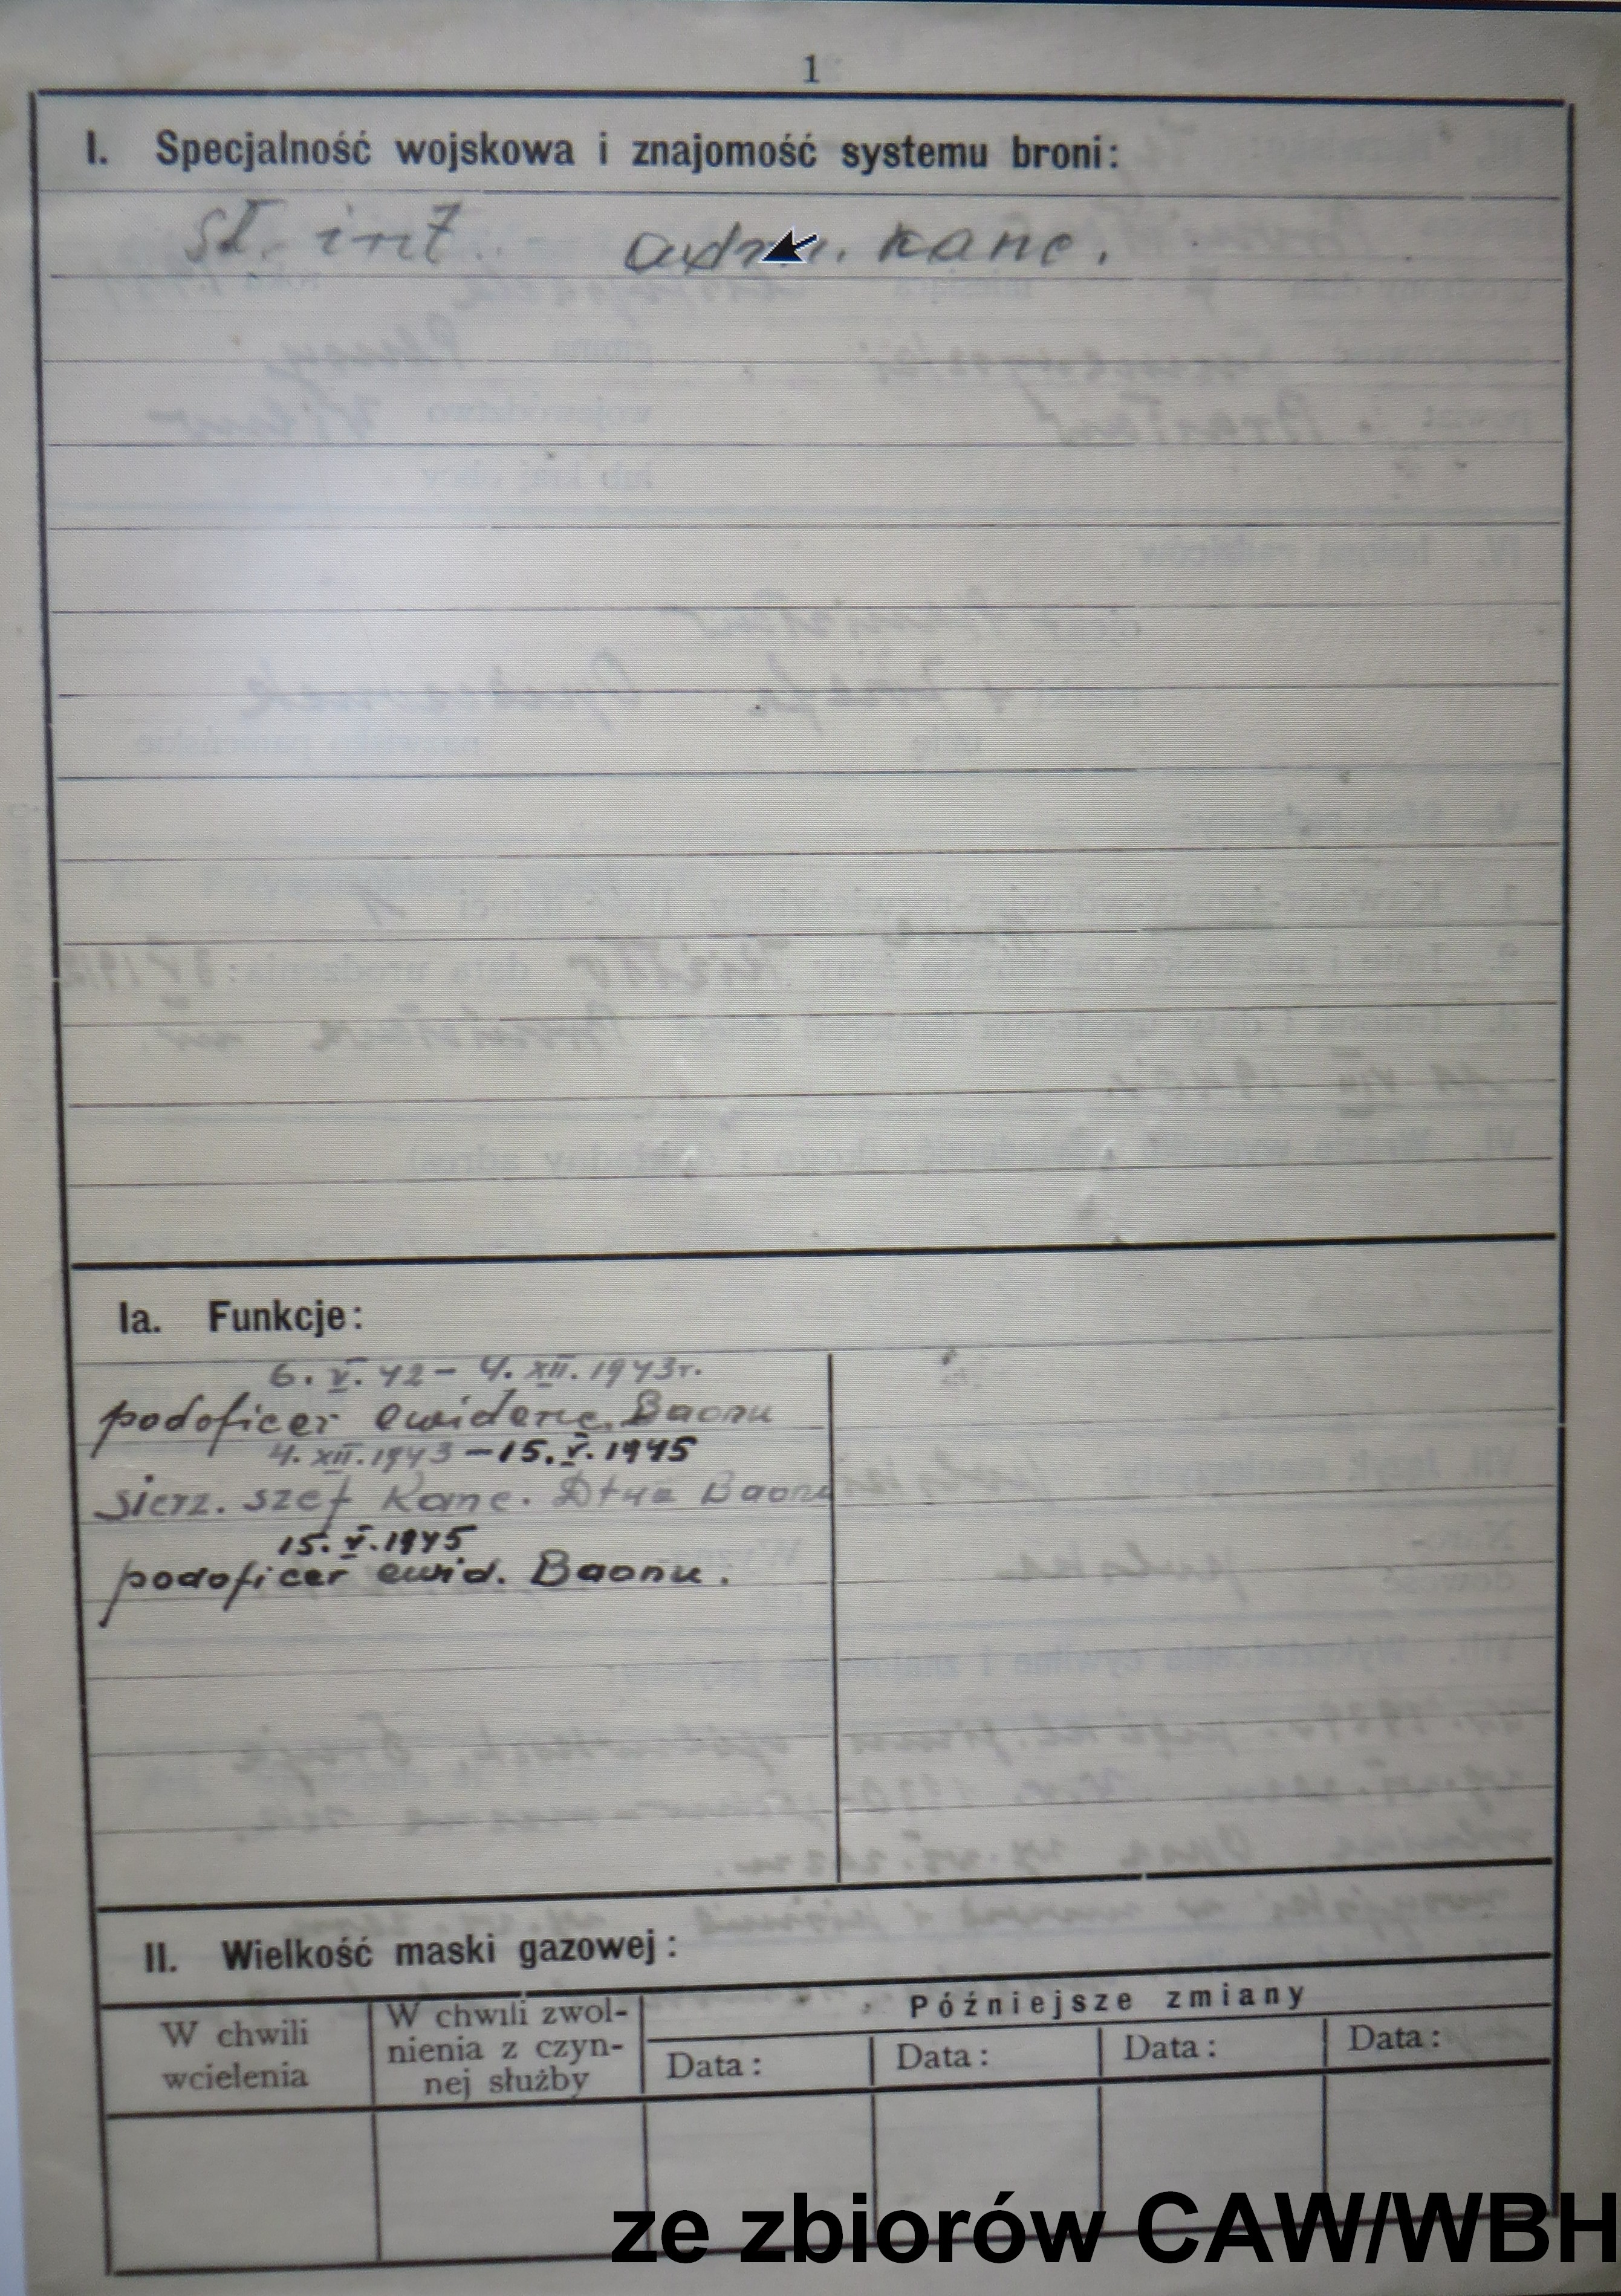 1
I. Specjalność wojskowa i znajomość systemu broni:
sł. int. adm. kanc.
Ia. Funkcje:
6. V. 42 – 4. XII. 1943r.
podoficer ewidenc. Baonu
4. XII. 1943 – 15. V. 1945
sierz. szef Kanc. Dtwa Baonu
15. V. 1945
podoficer ewid. Baonu.
II. Wielkość maski gazowej:
W chwili wcielenia
W chwili zwol-
nienia z czyn-
nej służby
Późniejsze zmiany
Data: Data: Data: Data:
ze zbiorów CAW/WBH